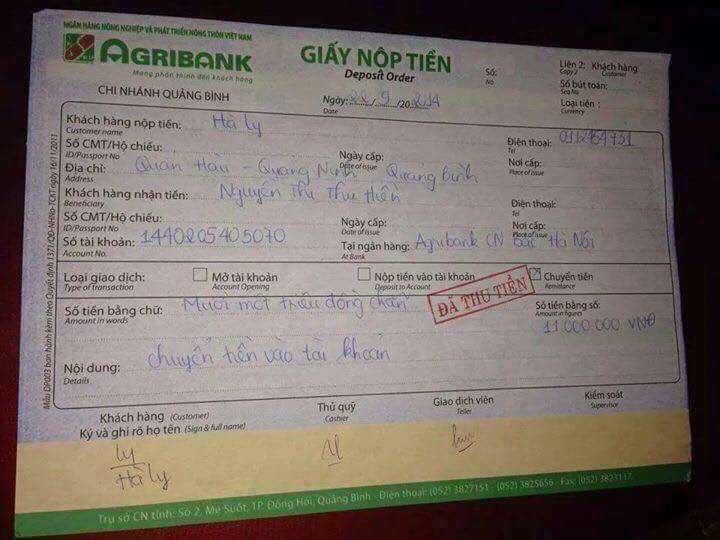 NGÂN HÀNG NÔNG NGHIỆP VÀ PHÁT TRIỂN NÔNG THÔN VIỆT NAM
AGRIBANK
Mang phồn thịnh đến khách hàng
CHI NHÁNH QUẢNG BÌNH
GIẤY NỘP TIỀN
Deposit Order
Ngày: 22/9/2014
Date
Số:
No.
Liên 2: Khách hàng
Copy 2 Customer
Số bút toán:
Seq No
Loại tiền:
Currency
Khách hàng nộp tiền: Hà Ly
Customer name
Điện thoại:
Tel
Số CMT/Hộ chiếu:
ID/Passport No
Ngày cấp:
Date of issue
Nơi cấp:
Place of issue
Địa chỉ: Quán Hàu - Quảng Ninh Quảng Bình
Address
Khách hàng nhận tiền: Nguyễn Thị Thu Hiền
Beneficiary
Điện thoại:
Tel
Số CMT/Hộ chiếu:
ID/Passport No
Ngày cấp:
Date of issue
Nơi cấp:
Place of issue
Số tài khoản: 1440205405070
Account No.
Tại ngân hàng: Agribank CN Bắc Hà Nội
At Bank
Loại giao dịch:
Type of transaction
Mở tài khoản
Account Opening
Nộp tiền vào tài khoản
Deposit to Account
Chuyển tiền
Remittance
Số tiền bằng chữ: Mười một triệu đồng chẵn
Amount in words
ĐÃ THU TIỀN
Số tiền bằng số:
Amount in figures
11.000.000 VNĐ
Nội dung: chuyển tiền vào tài khoản
Details
Khách hàng (Customer)
Ký và ghi rõ họ tên (Sign & full name)
Thủ quỹ
Cashier
Giao dịch viên
Teller
Kiểm soát
Supervisor
Ly
Hà Ly
Mẫu DP003 ban hành kèm theo Quyết định 1371/QĐ-NHNo-TCKT ngày 16/11/2011
Trụ sở CN tỉnh: Số 2, Mẹ Suốt, TP. Đồng Hới, Quảng Bình - Điện thoại: (052) 3827151 - (052) 3825656 - Fax: (052) 3823117.